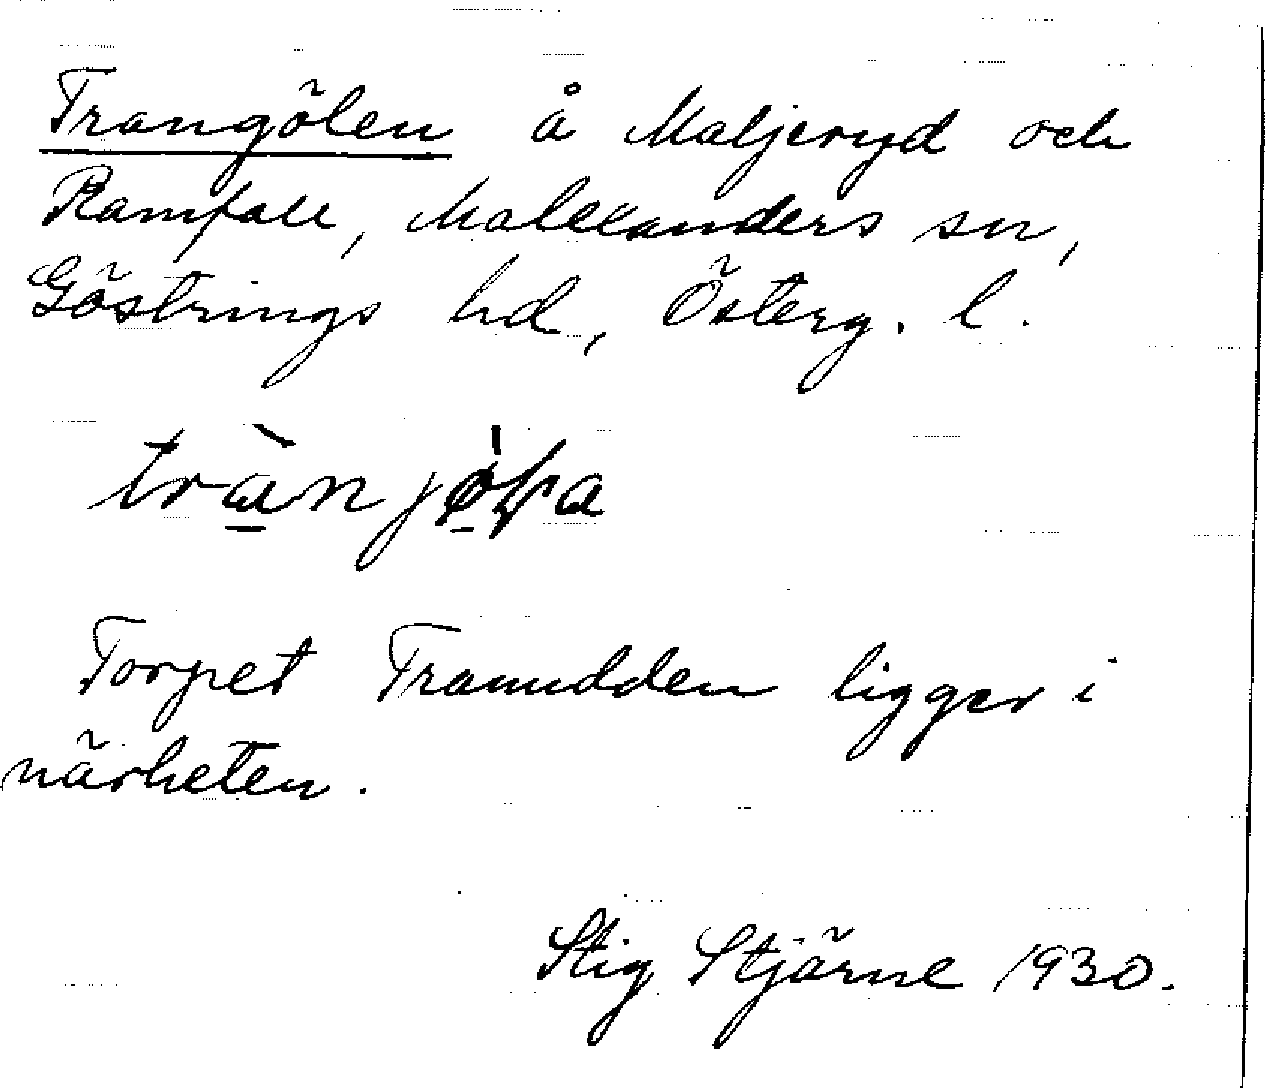 Trangölen å Maljeryd och
Ramfall, Malexanders sn,
Göstrings hd, Österg. l.
Torpet Tranudden ligger i
närheten.
Stig Stjärne 1930.